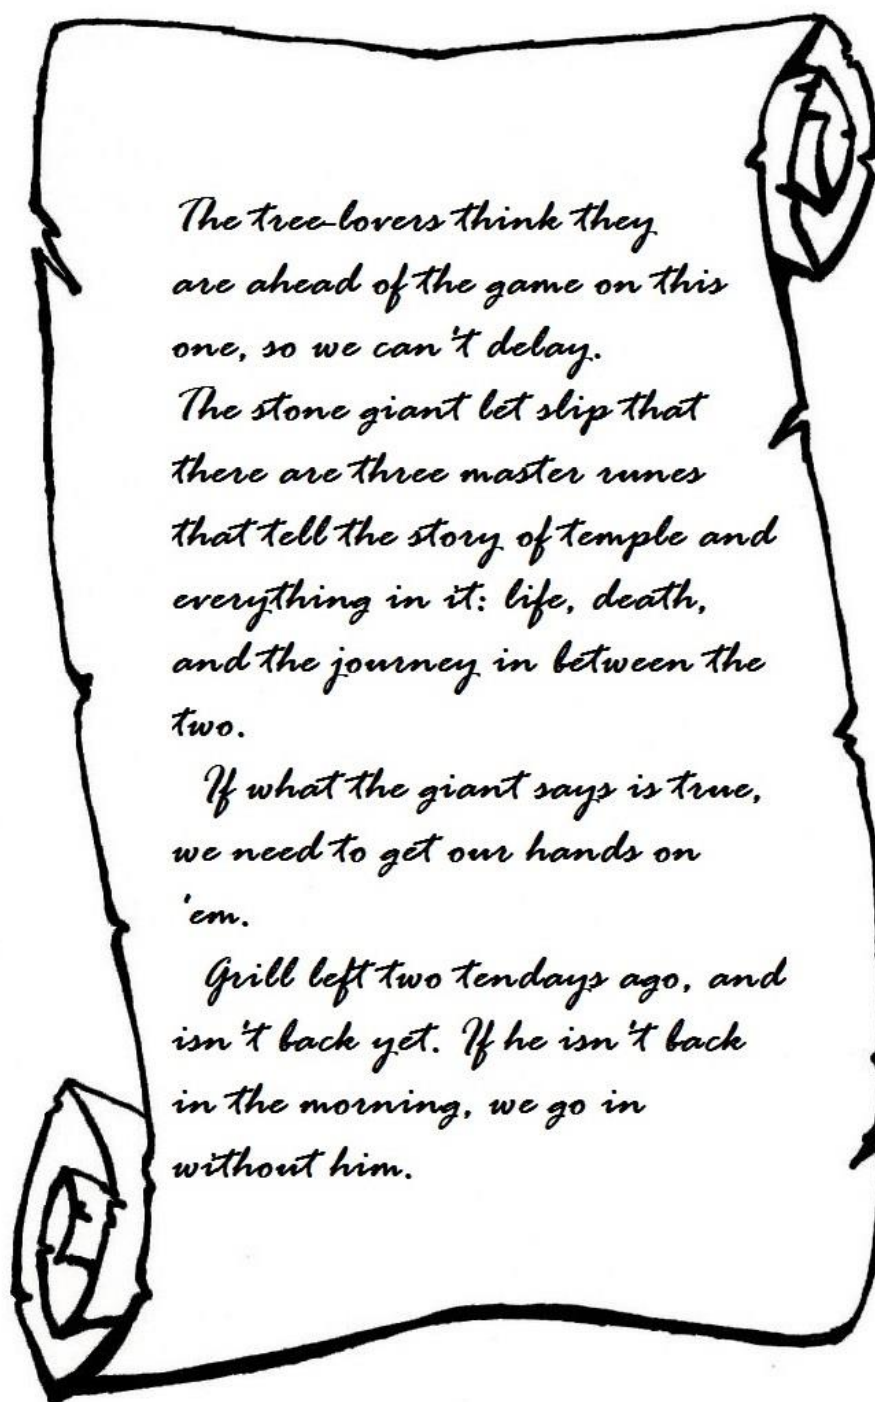 The tree-lovers think they
are ahead of the game on this
one, so we can't delay.
The stone giant let slip that
there are three master runes
that tell the story of temple and
everything in it: life, death,
and the journey in between the
two.
If what the giant says is true,
we need to get our hands on
'em.
Grill left two tendays ago, and
isn't back yet. If he isn't back
in the morning, we go in
without him.